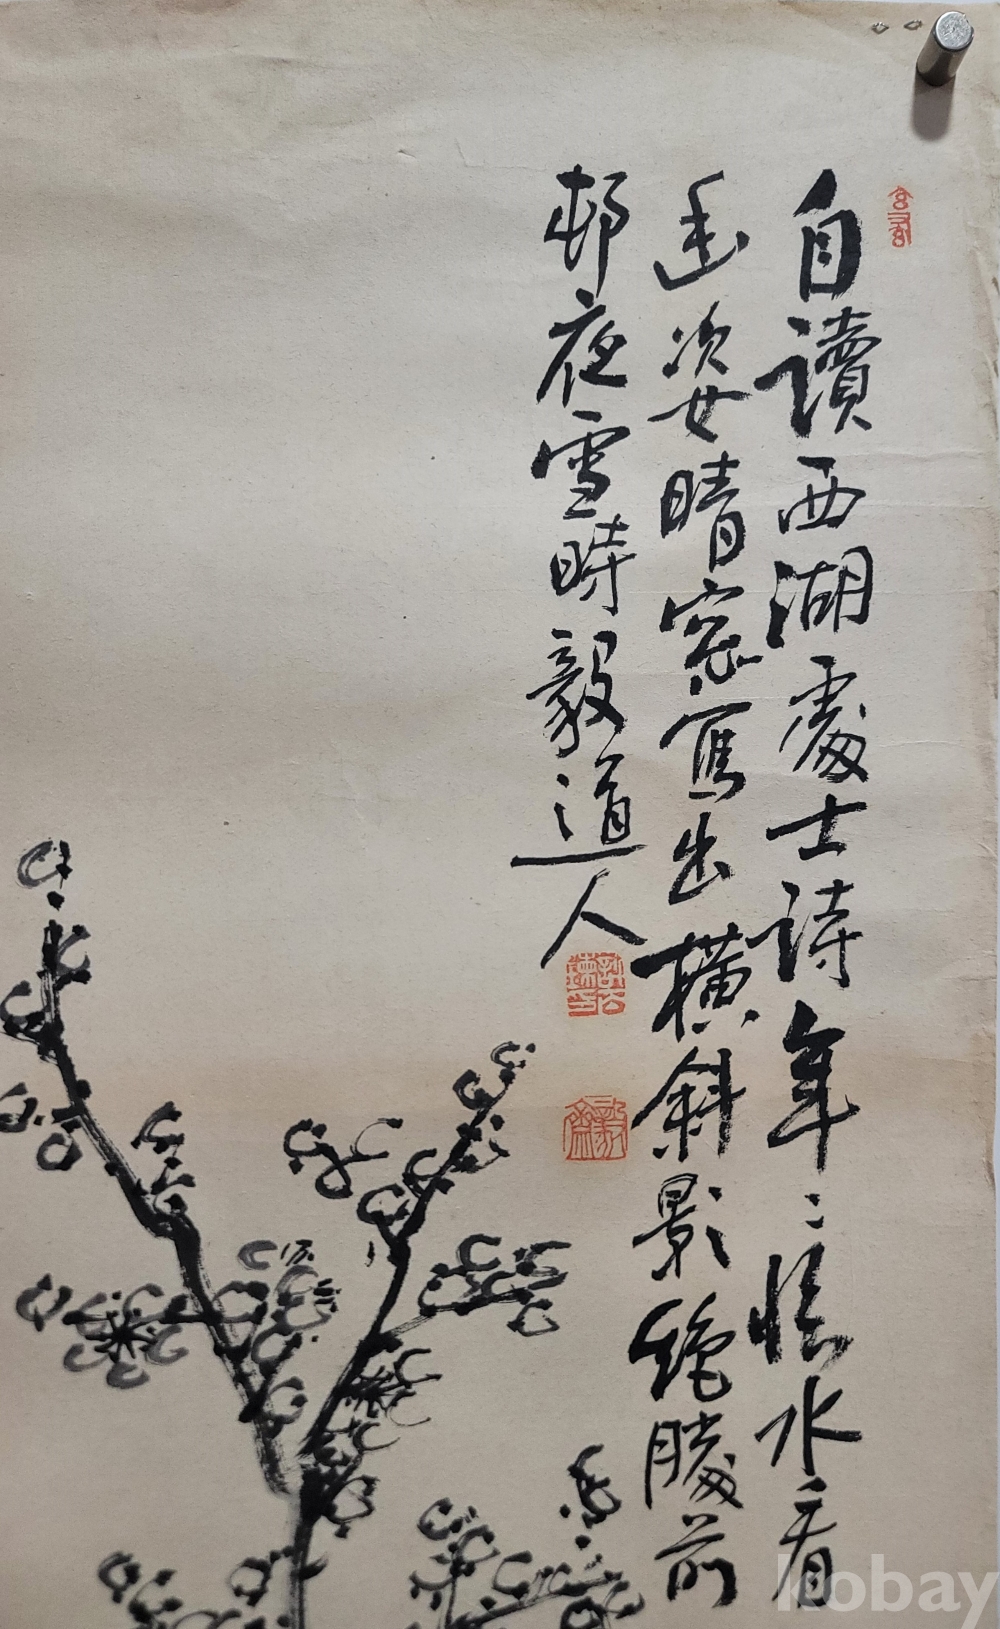 自讀西湖處士詩年〻臨水看
幽姿晴窓寫出橫斜影絶勝前
邨夜雪時毅道人
kobay